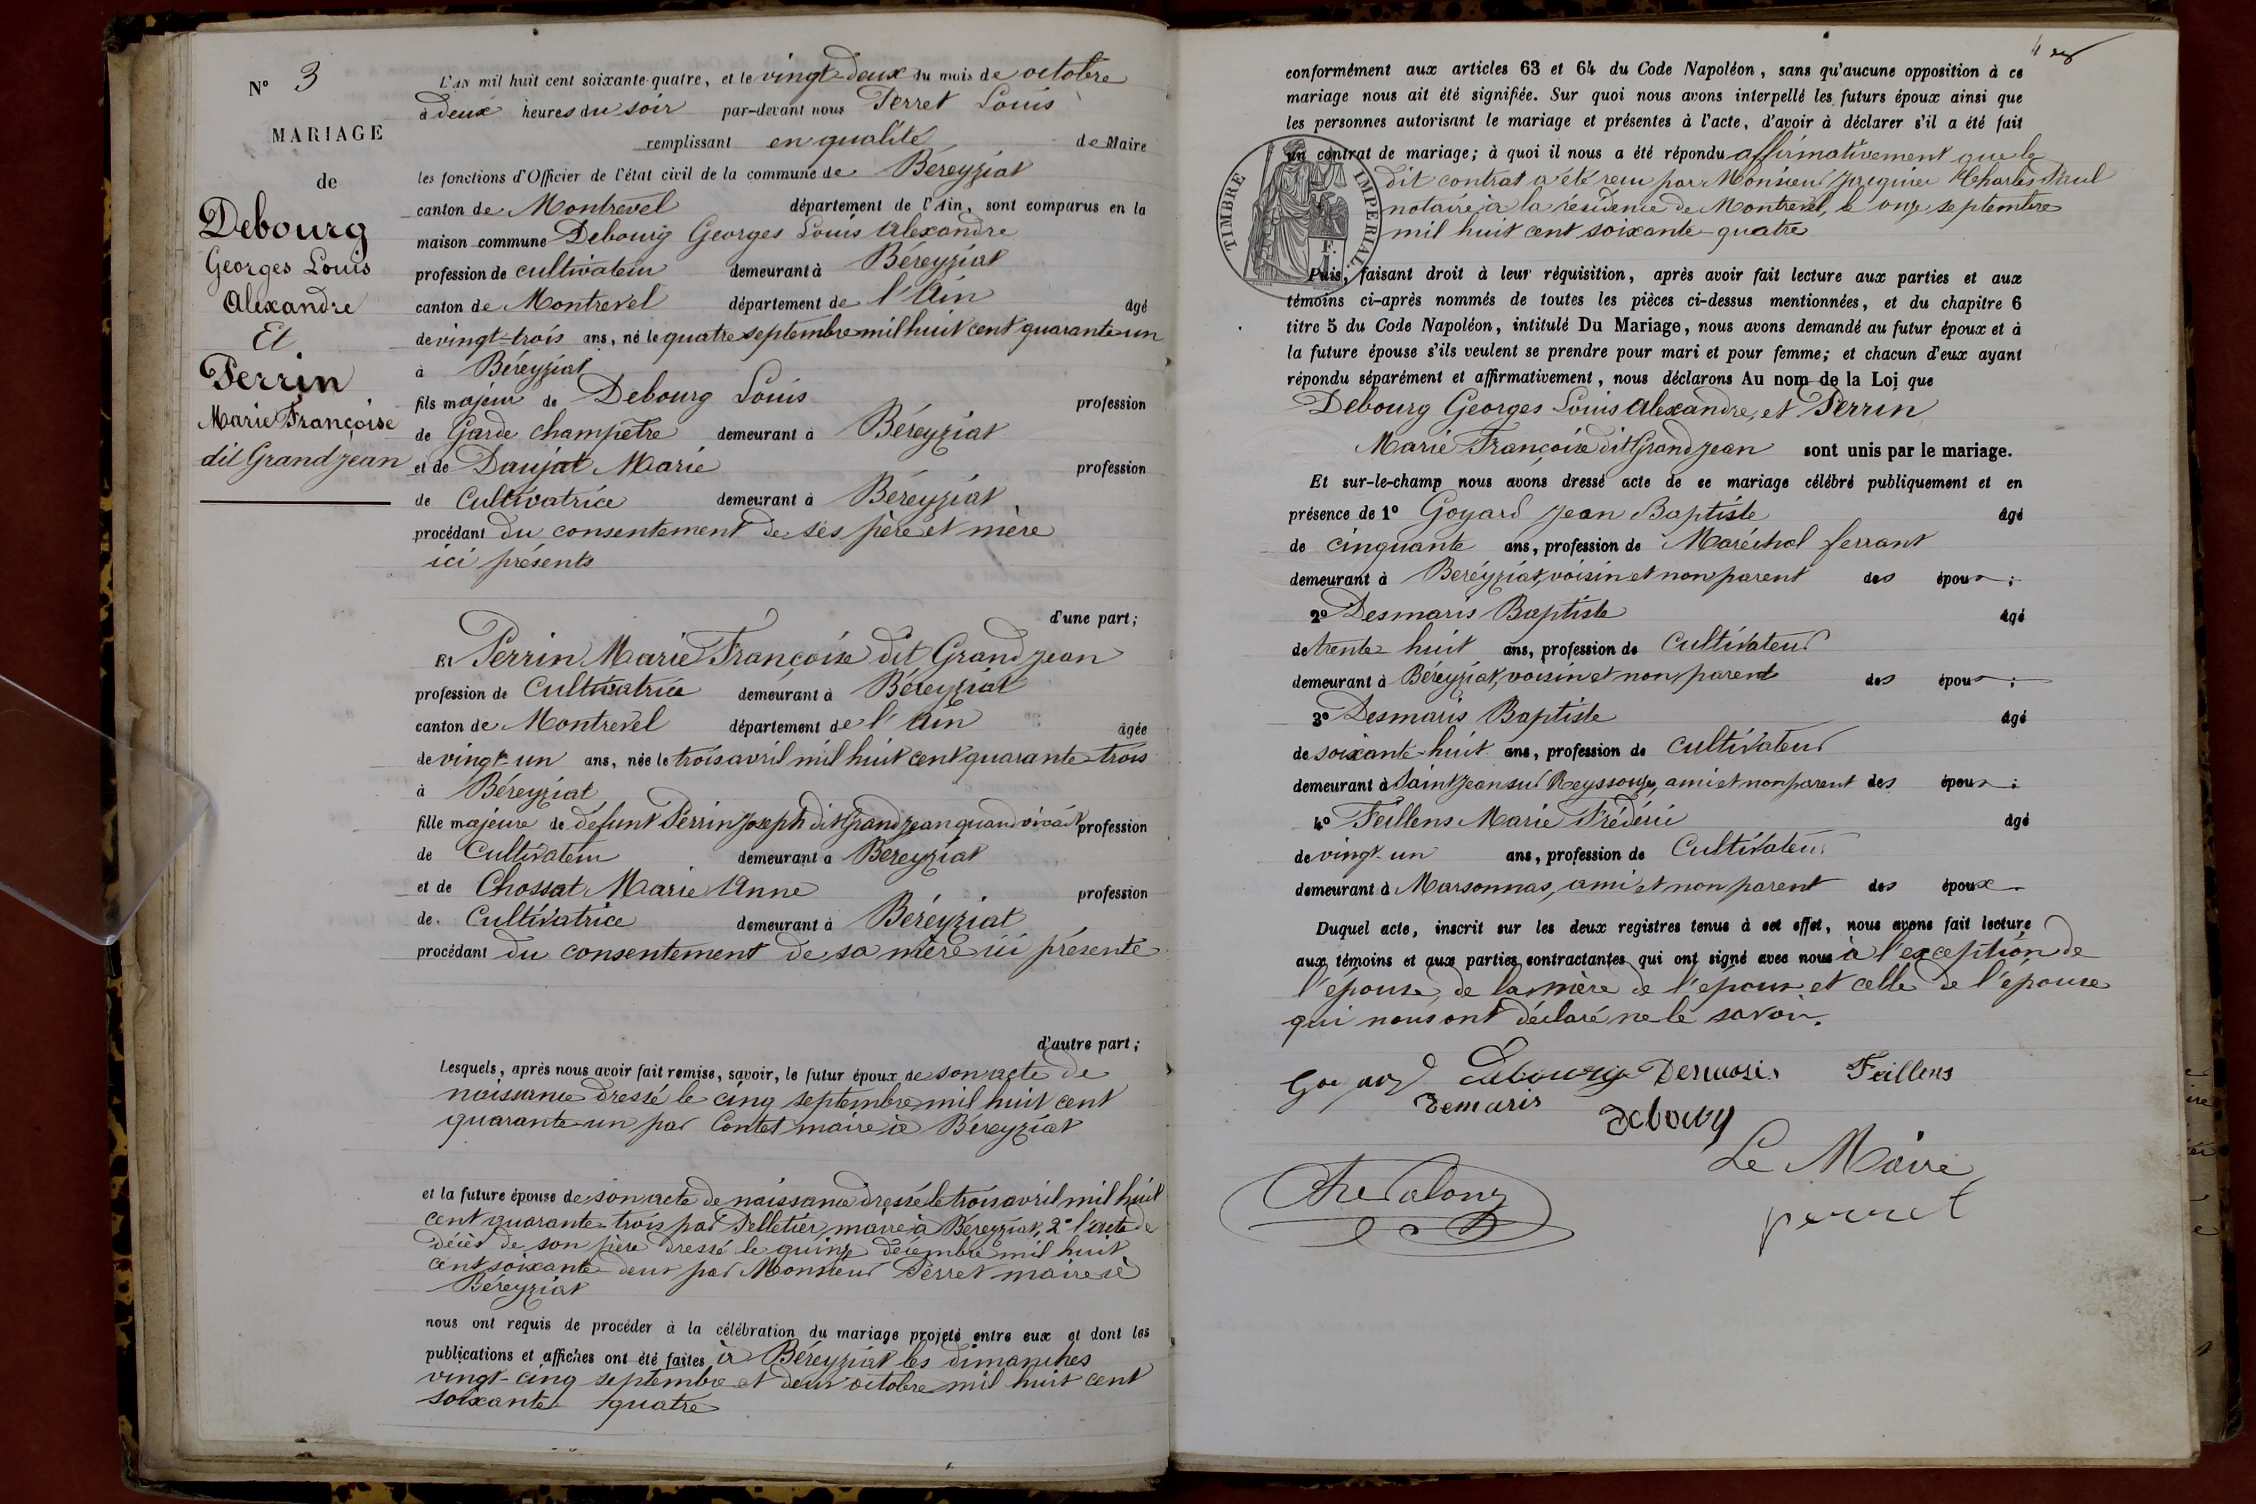 N° 3
MARIAGE
de
Debourg
Georges Louis
Alexandre
Et
Perrin
Marie Françoise
dit Grandjean
L'an mil huit cent soixante-quatre, et le vingt-deux du mois de octobre
à deux heures du soir par-devant nous Perret Louis
remplissant en qualité de Maire
les fonctions d'Officier de l'état civil de la commune de Béreyziat
canton de Montrevel département de l'Ain, sont comparus en la
maison commune Debourg Georges Louis Alexandre
profession de cultivateur demeurant à Béreyziat
canton de Montrevel département de l'Ain âgé
de vingt-trois ans, né le quatre septembre mil huit cent quarante un
à Béreyziat
fils majeur de Debourg Louis profession
de Garde champetre demeurant à Béreyziat
et de Daujat Marie profession
de Cultivatrice demeurant à Béreyziat
procédant du consentement de ses père et mère
ici présents
d'une part;
Et Perrin Marie Françoise dit Grand jean
profession de Cultivatrice demeurant à Béreyziat
canton de Montrevel département de l'Ain âgée
de vingt-un ans, née le trois avril mil huit cent quarante-trois
à Béreyziat
fille majeure de défunt Perrin Joseph dit Grand jean quand vivait profession
de Cultivateur demeurant à Béreyziat
et de Chossat Marie Anne profession
de Cultivatrice demeurant à Béreyziat
procédant du consentement de sa mère ici présente
d'autre part;
Lesquels, après nous avoir fait remise, savoir, le futur époux de son acte de
naissance dressé le cinq septembre mil huit cent
quarante-un par Contet maire à Béreyziat
et la future épouse de son acte de naissance dressé le trois avril mil huit
cent quarante-trois par Pelletier, maire à Béreyziat, 2° l'acte de
décès de son père dressé le quinze décembre mil huit
cent soixante-deux par Monsieur Perret maire à
Béreyziat
nous ont requis de procéder à la célébration du mariage projeté entre eux et dont les
publications et affiches ont été faites à Béreyziat les dimanches
vingt-cinq septembre et deux octobre mil huit cent
soixante quatre
conformément aux articles 63 et 64 du Code Napoléon, sans qu'aucune opposition à ce
mariage nous ait été signifiée. Sur quoi nous avons interpellé les futurs époux ainsi que
les personnes autorisant le mariage et présentes à l'acte, d'avoir à déclarer s'il a été fait
un contrat de mariage; à quoi il nous a été répondu affirmativement que le
dit contrat a été reçu par Monsieur Charles Paul
notaire à la résidence de Montrevel, le onze septembre
mil huit cent soixante-quatre
TIMBRE IMPERIAL
Puis, faisant droit à leur réquisition, après avoir fait lecture aux parties et aux
témoins ci-après nommés de toutes les pièces ci-dessus mentionnées, et du chapitre 6
titre 5 du Code Napoléon, intitulé Du Mariage, nous avons demandé au futur époux et à
la future épouse s'ils veulent se prendre pour mari et pour femme; et chacun d'eux ayant
répondu séparément et affirmativement, nous déclarons Au nom de la Loi que
Debourg Georges Louis Alexandre, et Perrin
Marie Françoise dit Grand jean sont unis par le mariage.
Et sur-le-champ nous avons dressé acte de ce mariage célébré publiquement et en
présence de 1° Goyard Jean Baptiste âgé
de cinquante ans, profession de Maréchal ferrant
demeurant à Beréyziat, voisin et non parent des époux;
2° Desmaris Baptiste âgé
de trente huit ans, profession de Cultivateur
demeurant à Béreyziat, voisin et non parent des époux;
3° Desmaris Baptiste âgé
de soixante-huit ans, profession de Cultivateur
demeurant à Saint Jean sur Reyssouze, ami et non parent des époux;
4° Feillens Marie Frédéric âgé
de vingt-un ans, profession de Cultivateur
demeurant à Marsonnas, ami et non parent des époux
Duquel acte, inscrit sur les deux registres tenus à cet effet, nous avons fait lecture
aux témoins et aux parties contractantes qui ont signé avec nous à l'exception de
l'épouse, de la mère de l'époux et celle de l'épouse
qui nous ont déclaré ne le savoir.
Goyard Debourg Desmaris Feillens
Demaris Debourg
Le Maire
perret